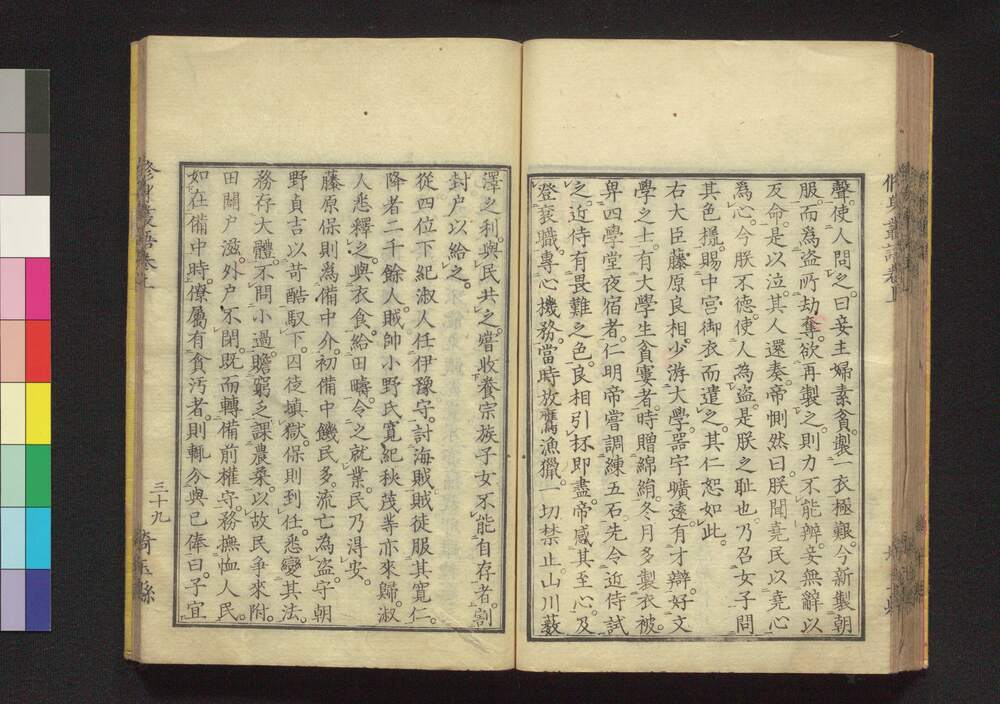 聲。使人問之。曰妾主婦素貧。製一衣極艱。今新製朝
服。而為盗所劫奪。欲再製之。則力不能辨。妾無辭以
反命。是以泣其人還奏。帝惻然曰。朕聞堯民以堯心
為心。今朕不德。使人為盗。是朕之耻也。乃召女子問
其色樣。賜中宮御衣而遣之。其仁恕如此。
右大臣藤原良相。少游大學。器宇曠遠。有才辯。好文
學之士。有大學生貧窶者。時贈綿絹。冬月多製衣被。
卑四學堂夜宿者。仁明帝嘗調練五石。先令近侍試
之。近侍有畏難之色。良相引抔即盡。帝感其至心。及
登袞職。專心機務。當時放鷹漁獵。一切禁止。山川藪
澤之利。與民共之。嘗收養宗族子女不能自存者。割
封户以給之。
從四位下紀淑人任伊豫守。討海賊。賊徒服其寬仁。
降者二千餘人。賊帥小野氏寬紀秋茂等亦來歸。淑
人悉釋之。與衣食。給田疇。令之就業。民乃得安。
藤原保則為備中介。初備中饑民多。流亡為盗。守朝
野貞吉以苛酷馭下。囚徒填獄。保則到任。悉變其法。
務存大體。不問小過。贍窮乏。課農桑。以故民爭來附。
田闢户滋。外户不閉。既而轉備前權守。務撫恤人民。
如在備中時。僚屬有貪汚者。則輒分與已俸曰。子宜
三十九
埼玉縣